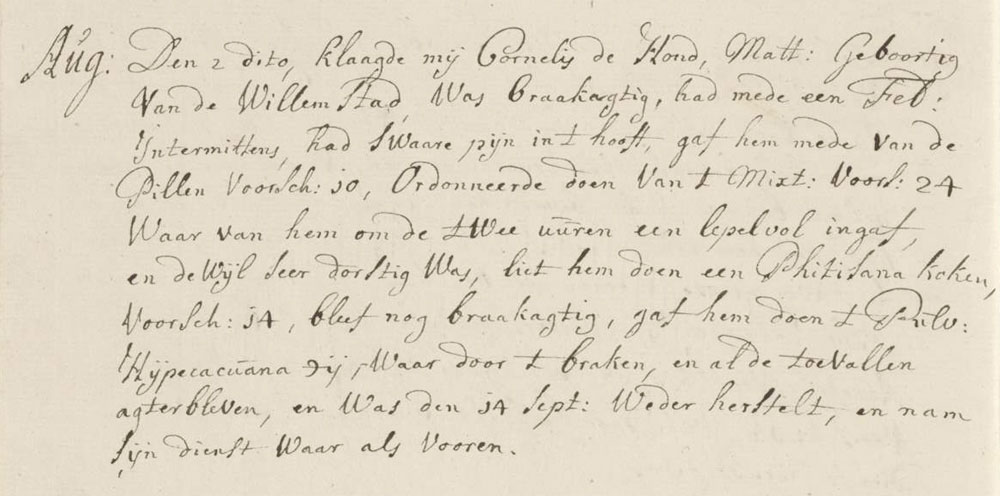 Aug: Den 2 dito, klaagde mij Cornelis de Hond, Matt: Geboortig
Van de Willem Stad, Was braakagtig, had mede een Feb:
Intermittens, had Swaare pijn in t hooft, gaf hem mede van de
Pillen Voorsch: 10, Ordonneerde doen Van t Mixt: Voors: 24
Waar van hem om de twee uuren een lepel vol ingaf,
en dewijl seer dorstig Was, liet hem doen een Phitisana koken,
Voorsch: 14, bleef nog braakagtig, gaf hem doen t Pulv:
Hijpecacuana ℈ij, Waar door t braken, en al de toevallen
agterbleven, en Was den 14 Sept: Weder herstelt, en nam
Sijn dienst Waar als Vooren.